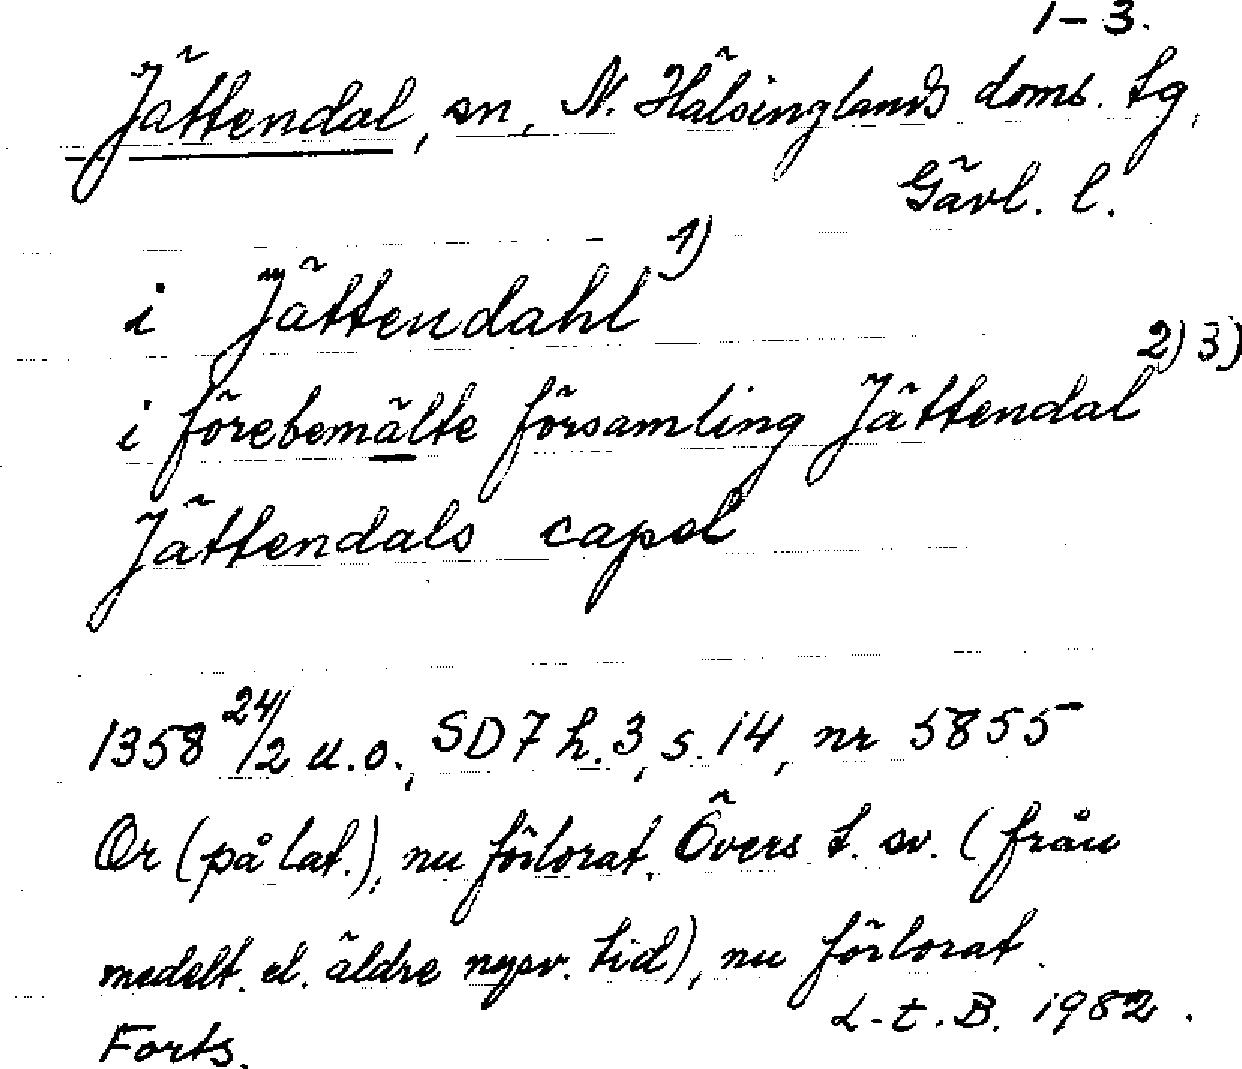 1-3.
Jättendal, sn, N. Hälsinglands doms. tg,
Gävl. l.
i Jättendahl 1)
i förebemälte församling Jättendal 2) 3)
Jättendals capel
1358 24/2 u.o., SD 7 h. 3, s. 14, nr 5855
Or (på lat.), nu förlorat. Övers t. sv. (från
medelt. el. äldre nysv. tid), nu förlorat.
L-t. B. 1982.
Forts.